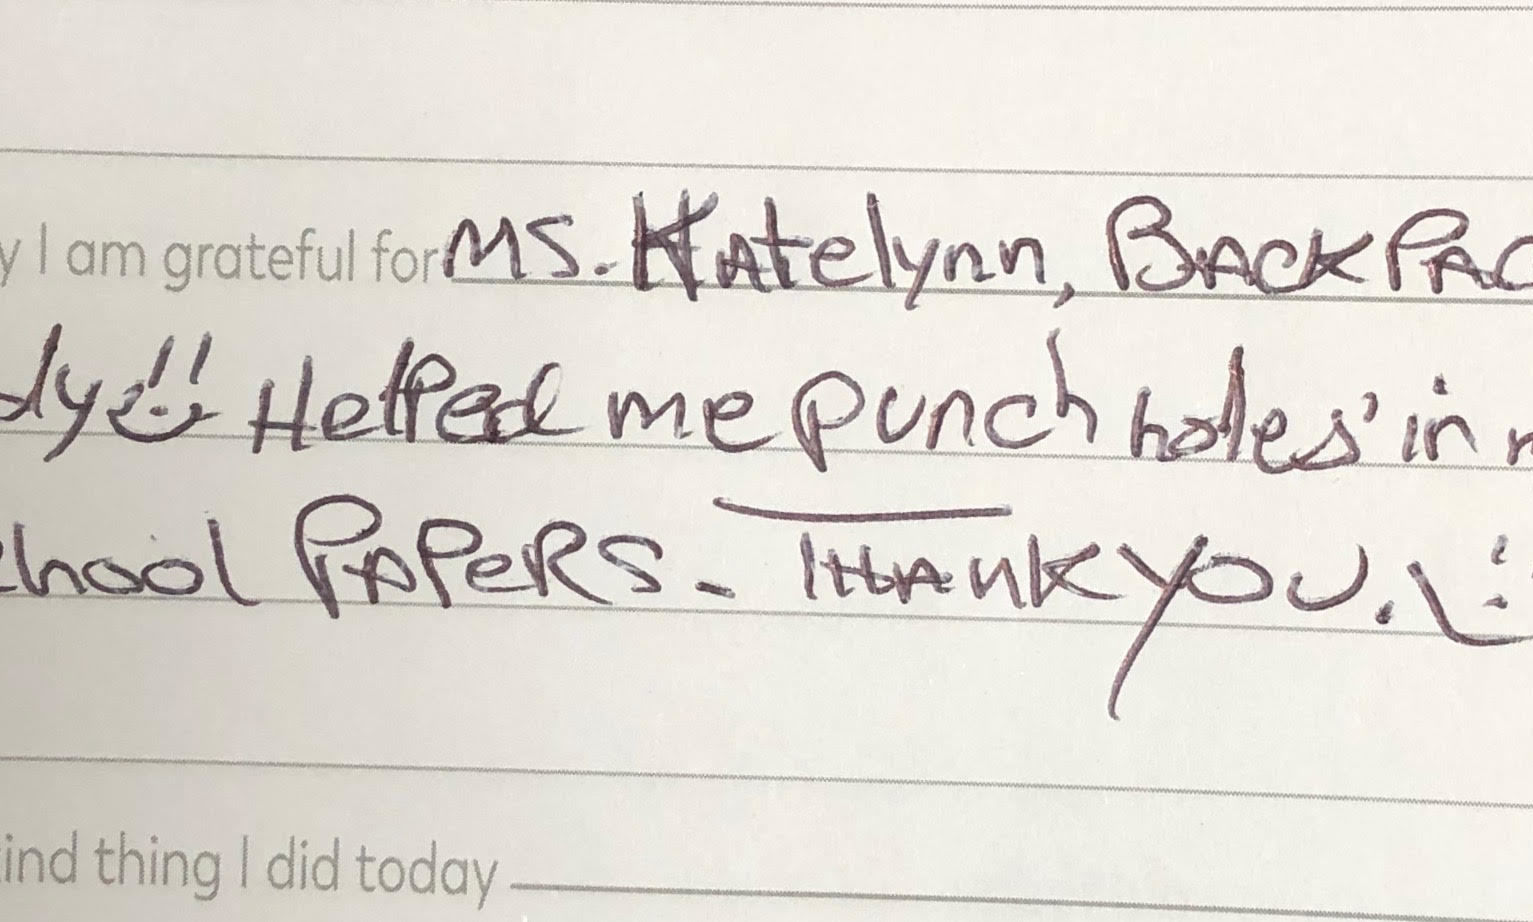 y I am grateful for MS. KAtelynn, BACKPAC
dy Helped me punch holes' in
chool PAPeRS. - THANK YOU.
ind thing I did today